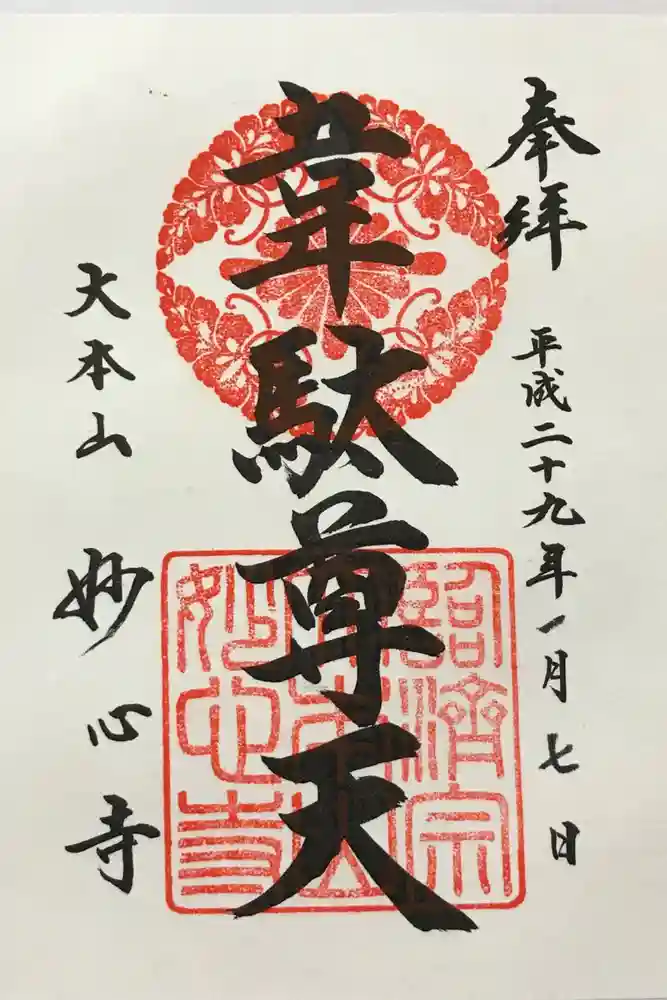 奉拝
平成二十九年一月七日
韋駄尊天
臨済宗
大本山
妙心寺
大本山
妙心寺